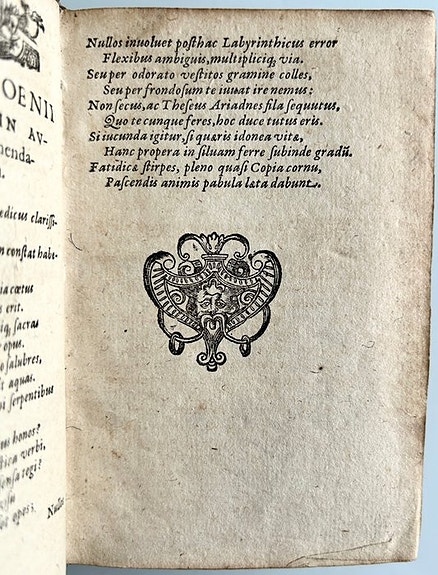 OENII
IN AV-
menda-
edicus clarissi-
m constat habe-
ia cœtus
s erit.
iq, sacras
opus.
o salubres,
t aquas.
ni serpentibus
us honos?
tica verbi,
ensa tegi?
Nullos
Nullos inuoluet posthac Labyrinthicus error
Flexibus ambiguis, multipliciq; via.
Seu per odorato vestitos gramine colles,
Seu per frondosum te iuuat ire nemus;
Non secus, ac Theseus Ariadnes fila sequutus,
Quo te cunque feres, hoc duce tutus eris.
Si iucunda igitur, si quæris idonea vitæ,
Hanc propera in siluam ferre subinde gradũ.
Fatidicæ stirpes, pleno quasi Copia cornu,
Pascendis animis pabula læta dabunt.